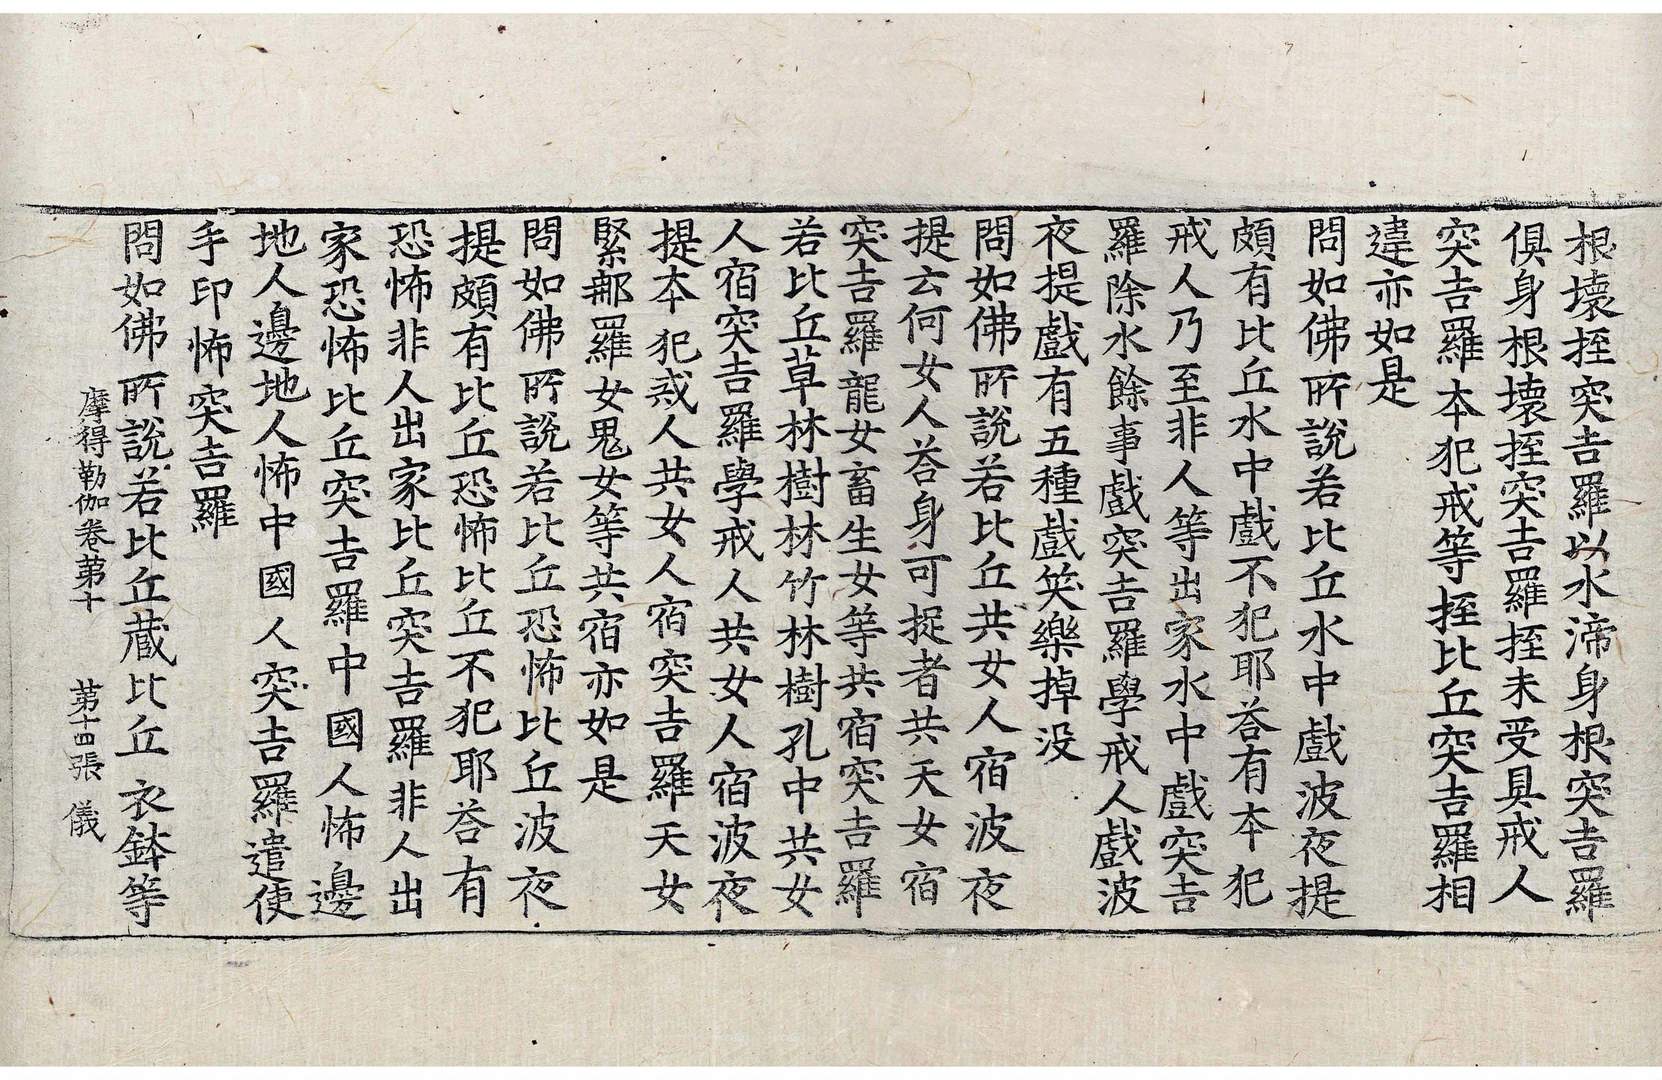 根壞挃突吉羅以水渧身根突吉羅
俱身根壞挃突吉羅挃未受具戒人
突吉羅本犯戒等挃比丘突吉羅相
違亦如是
問如佛所說若比丘水中戲波夜提
頗有比丘水中戲不犯耶荅有本犯
戒人乃至非人等出家水中戲突吉
羅除水餘事戲突吉羅學戒人戲波
夜提戲有五種戲笑樂掉没
問如佛所說若比丘共女人宿波夜
提云何女人荅身可捉者共天女宿
突吉羅龍女畜生女等共宿突吉羅
若比丘草林樹林竹林樹孔中共女
人宿突吉羅學戒人共女人宿波夜
提本犯戒人共女人宿突吉羅天女
緊那羅女鬼女等共宿亦如是
問如佛所說若比丘恐怖比丘波夜
提頗有比丘恐怖比丘不犯耶荅有
恐怖非人出家比丘突吉羅非人出
家恐怖比丘突吉羅中國人怖邊
地人邊地人怖中國人突吉羅遣使
手印怖突吉羅
問如佛所說若比丘蔵比丘衣鉢等
摩得勒伽卷第十 第十四張 儀